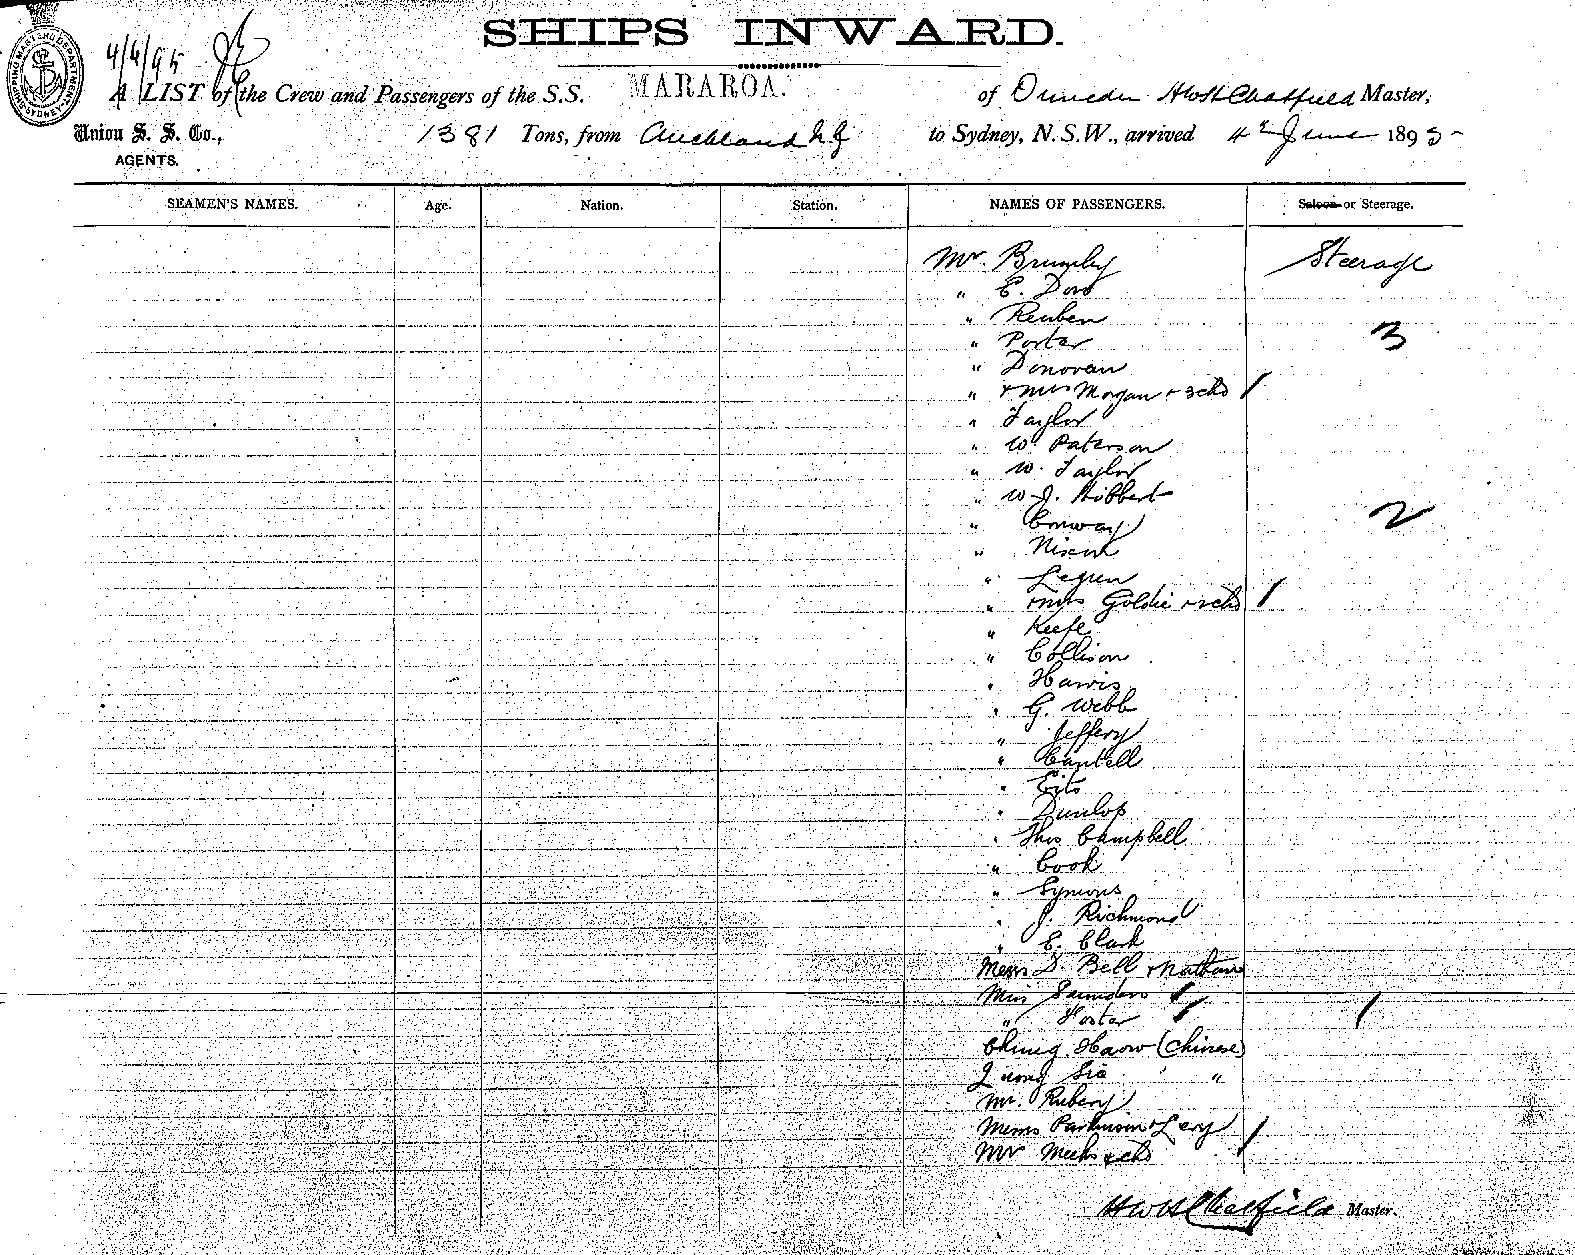 SHIPS INWARD.
SHIPPING MASTERS DEPARTMENT SYDNEY
4/4/95
A LIST of the Crew and Passengers of the S.S. MARAROA. of Dunedin HWH Chatfield Master,
Union S. S. Co., 1381 Tons, from Auckland N.Z to Sydney, N.S.W., arrived 4th June 1895
AGENTS.
SEAMEN'S NAMES. Age. Nation. Station. NAMES OF PASSENGERS. Saloon or Steerage.
Mr. Brumley Steerage
" E. Dow
" Reuben
" Porter 3
" Donovan
" + Mrs Morgan + 3 chd /
" Taylor
" W. Paterson
" W. Taylor
" W. J. Hibbert
" Conway 2
" Nixon
"
" + Mrs Goldie + 2 chd /
" Keefe
" Collison
" Harris
" G. Webb
" Jeffery
" Cantell
"
" Dunlop
" Thos Campbell
" Cook
" Symons
" J. Richmond
" E. Clark
Messrs D. Bell + Mathews
Miss Saunders
" Foster /
Chung Haow (Chinese)
Quong Sie "
Mr. Rubery
Messrs Parkinson + Levy /
Mr Meeks + chd
HWH Chatfield Master.